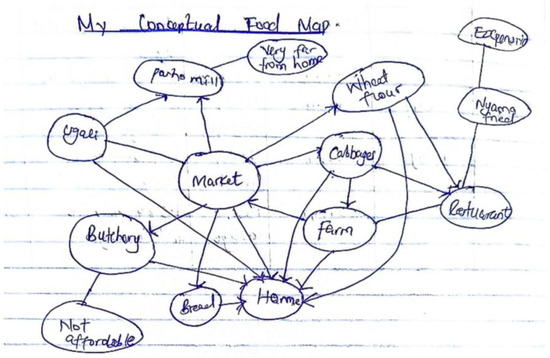 My Conceptual Food Map.
Very far
from home
posho mill
Wheat
flour
Nyama
Ugali
Cabbages
Market
Restuarant
Farm
Butchery
Bread
Home
Not
affordable